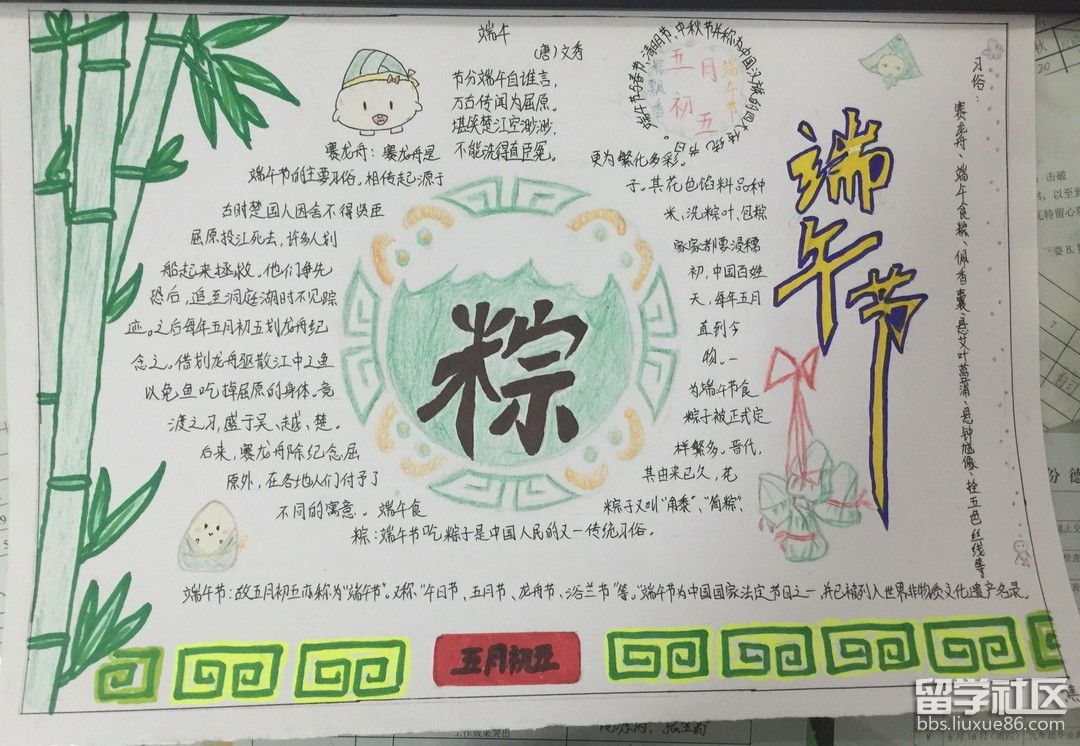 端午
(唐)文秀
节分端午自谁言，
万古传闻为屈原。
堪笑楚江空渺渺，
不能洗得直臣冤。
端午节与春节、清明节、中秋节并称为中国汉族的四大传统节日。
五月
初五
端午节
粽飘香
端午节
习俗：
赛龙舟、端午食粽、佩香囊、悬艾叶菖蒲、悬钟馗像、拴五色丝线等
赛龙舟：赛龙舟是
端午节的主要习俗。相传起源于
古时楚国人因舍不得贤臣
屈原投江死去，许多人划
船起来拯救。他们争先
恐后，追至洞庭湖时不见踪
迹。之后每年五月初五划龙舟纪
念之。借划龙舟驱散江中之鱼
以免鱼吃掉屈原的身体。竞
渡之习，盛于吴、越、楚。
后来，赛龙舟除纪念屈
原外，在各地人们付予了
不同的寓意。 端午食
粽：端午节吃粽子是中国人民的又一传统习俗。
粽子又叫“角黍”、“筒粽”、
其由来已久，花
样繁多。晋代，
粽子被正式定
为端午节食
物。一
直到今
天，每年五月
初，中国百姓
家家都要浸糯
米、洗粽叶、包粽
子。其花色馅料品种
更为繁化多彩。
粽
端午节：故五月初五亦称为“端午节”。又称“午日节、五月节、龙舟节、浴兰节”等。“端午节为中国国家法定节日之一，并已被列入世界非物质文化遗产名录。
五月初五
留学社区
bbs.liuxue86.com